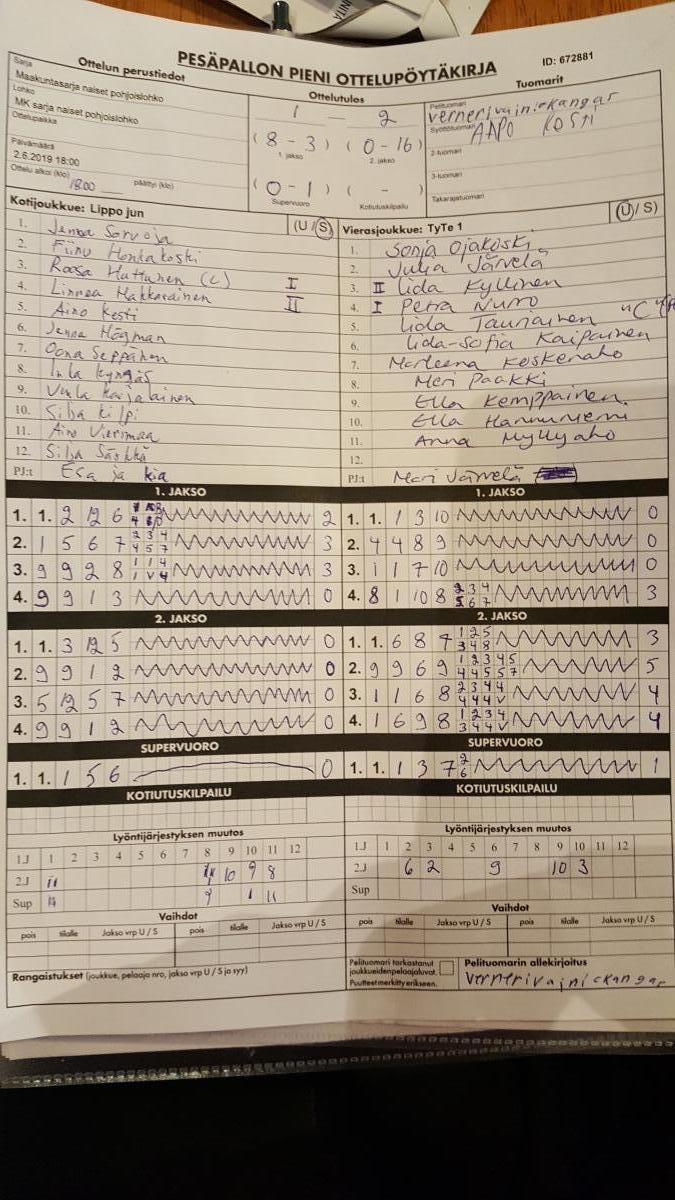 PESÄPALLON PIENI OTTELUPÖYTÄKIRJA
ID: 672881
Ottelun perustiedot
Sarja
Maakuntasarja naiset pohjoislohko
Lohko
MK sarja naiset pohjoislohko
Ottelupaikka
Päivämäärä
2.6.2019 18:00
Ottelu alkoi (klo) 18.00 päättyi (klo)
Ottelutulos
1 — 2
(8 - 3) (0 - 16)
1. jakso 2. jakso
(0 - 1) ( - )
Supervuoro Kotiutuskilpailu
Tuomarit
Pelituomari
vernerivainiokangas
Syöttötuomari
AAPO KOSTI
2-tuomari
3-tuomari
Takarajatuomari
Kotijoukkue: Lippo jun (U / S)
1. Jenna Sarvoja
2. Fiinu Honkakoski
3. Roosa Huttunen (c)
4. Linnea Hakkarainen I
5. Aino Kesti II
6. Jenna Högman
7. Oona Seppänen
8. Inla Kyngäs
9. Karjalainen
10. Silja Kilpi
11. Aino Vierimaa
12. Silja Särkkä
PJ:t Esa ja Kia
Vierasjoukkue: TyTe 1 (U / S)
1. Sonja Ojakoski
2. Julia Järvelä
3. II Iida Kyllinen
4. I Petra Nurro
5. Iida Tauriainen "C"
6. Iida-Sofia Kaipainen
7. Marleena Koskenaho
8. Meri Paakki
9. Ella Kemppainen
10. Ella Hannuniemi
11. Anna Myllyaho
12.
PJ:t Mari Järvelä
1. JAKSO
1. 1. 2 12 6 2
2. 1 5 6 7 2 3 4 4 5 7 3
3. 9 9 2 8 1 1 4 1 V 4 3
4. 9 9 1 3 0
1. JAKSO
1. 1. 1 3 10 0
2. 4 4 8 9 0
3. 1 1 7 10 0
4. 8 1 10 8 2 3 4 5 6 7 3
2. JAKSO
1. 1. 3 12 5 0
2. 9 9 1 2 0
3. 5 12 5 7 0
4. 9 9 1 2 0
2. JAKSO
1. 1. 6 8 7 1 2 5 3 4 8 3
2. 9 9 6 9 1 2 3 4 5 4 4 5 5 7 5
3. 1 1 6 8 2 3 4 4 4 4 4 V 4
4. 1 6 9 8 1 2 3 4 3 4 4 V 4
SUPERVUORO
1. 1. 1 5 6 0
SUPERVUORO
1. 1. 1 3 7 2 6 1
KOTIUTUSKILPAILU
KOTIUTUSKILPAILU
Lyöntijärjestyksen muutos
1J 1 2 3 4 5 6 7 8 9 10 11 12
2J 11 10 9 8
Sup 9 1 11
Lyöntijärjestyksen muutos
1J 1 2 3 4 5 6 7 8 9 10 11 12
2J 6 2 9 10 3
Sup
Vaihdot
pois tilalle Jakso vrp U / S pois tilalle Jakso vrp U / S
Vaihdot
pois tilalle Jakso vrp U / S pois tilalle Jakso vrp U / S
Rangaistukset (joukkue, pelaaja nro, jakso vrp U / S ja syy)
Pelituomari tarkastanut
joukkueidenpelaajaluvat.
Puutteet merkitty erikseen.
Pelituomarin allekirjoitus
vernerivainiokangas